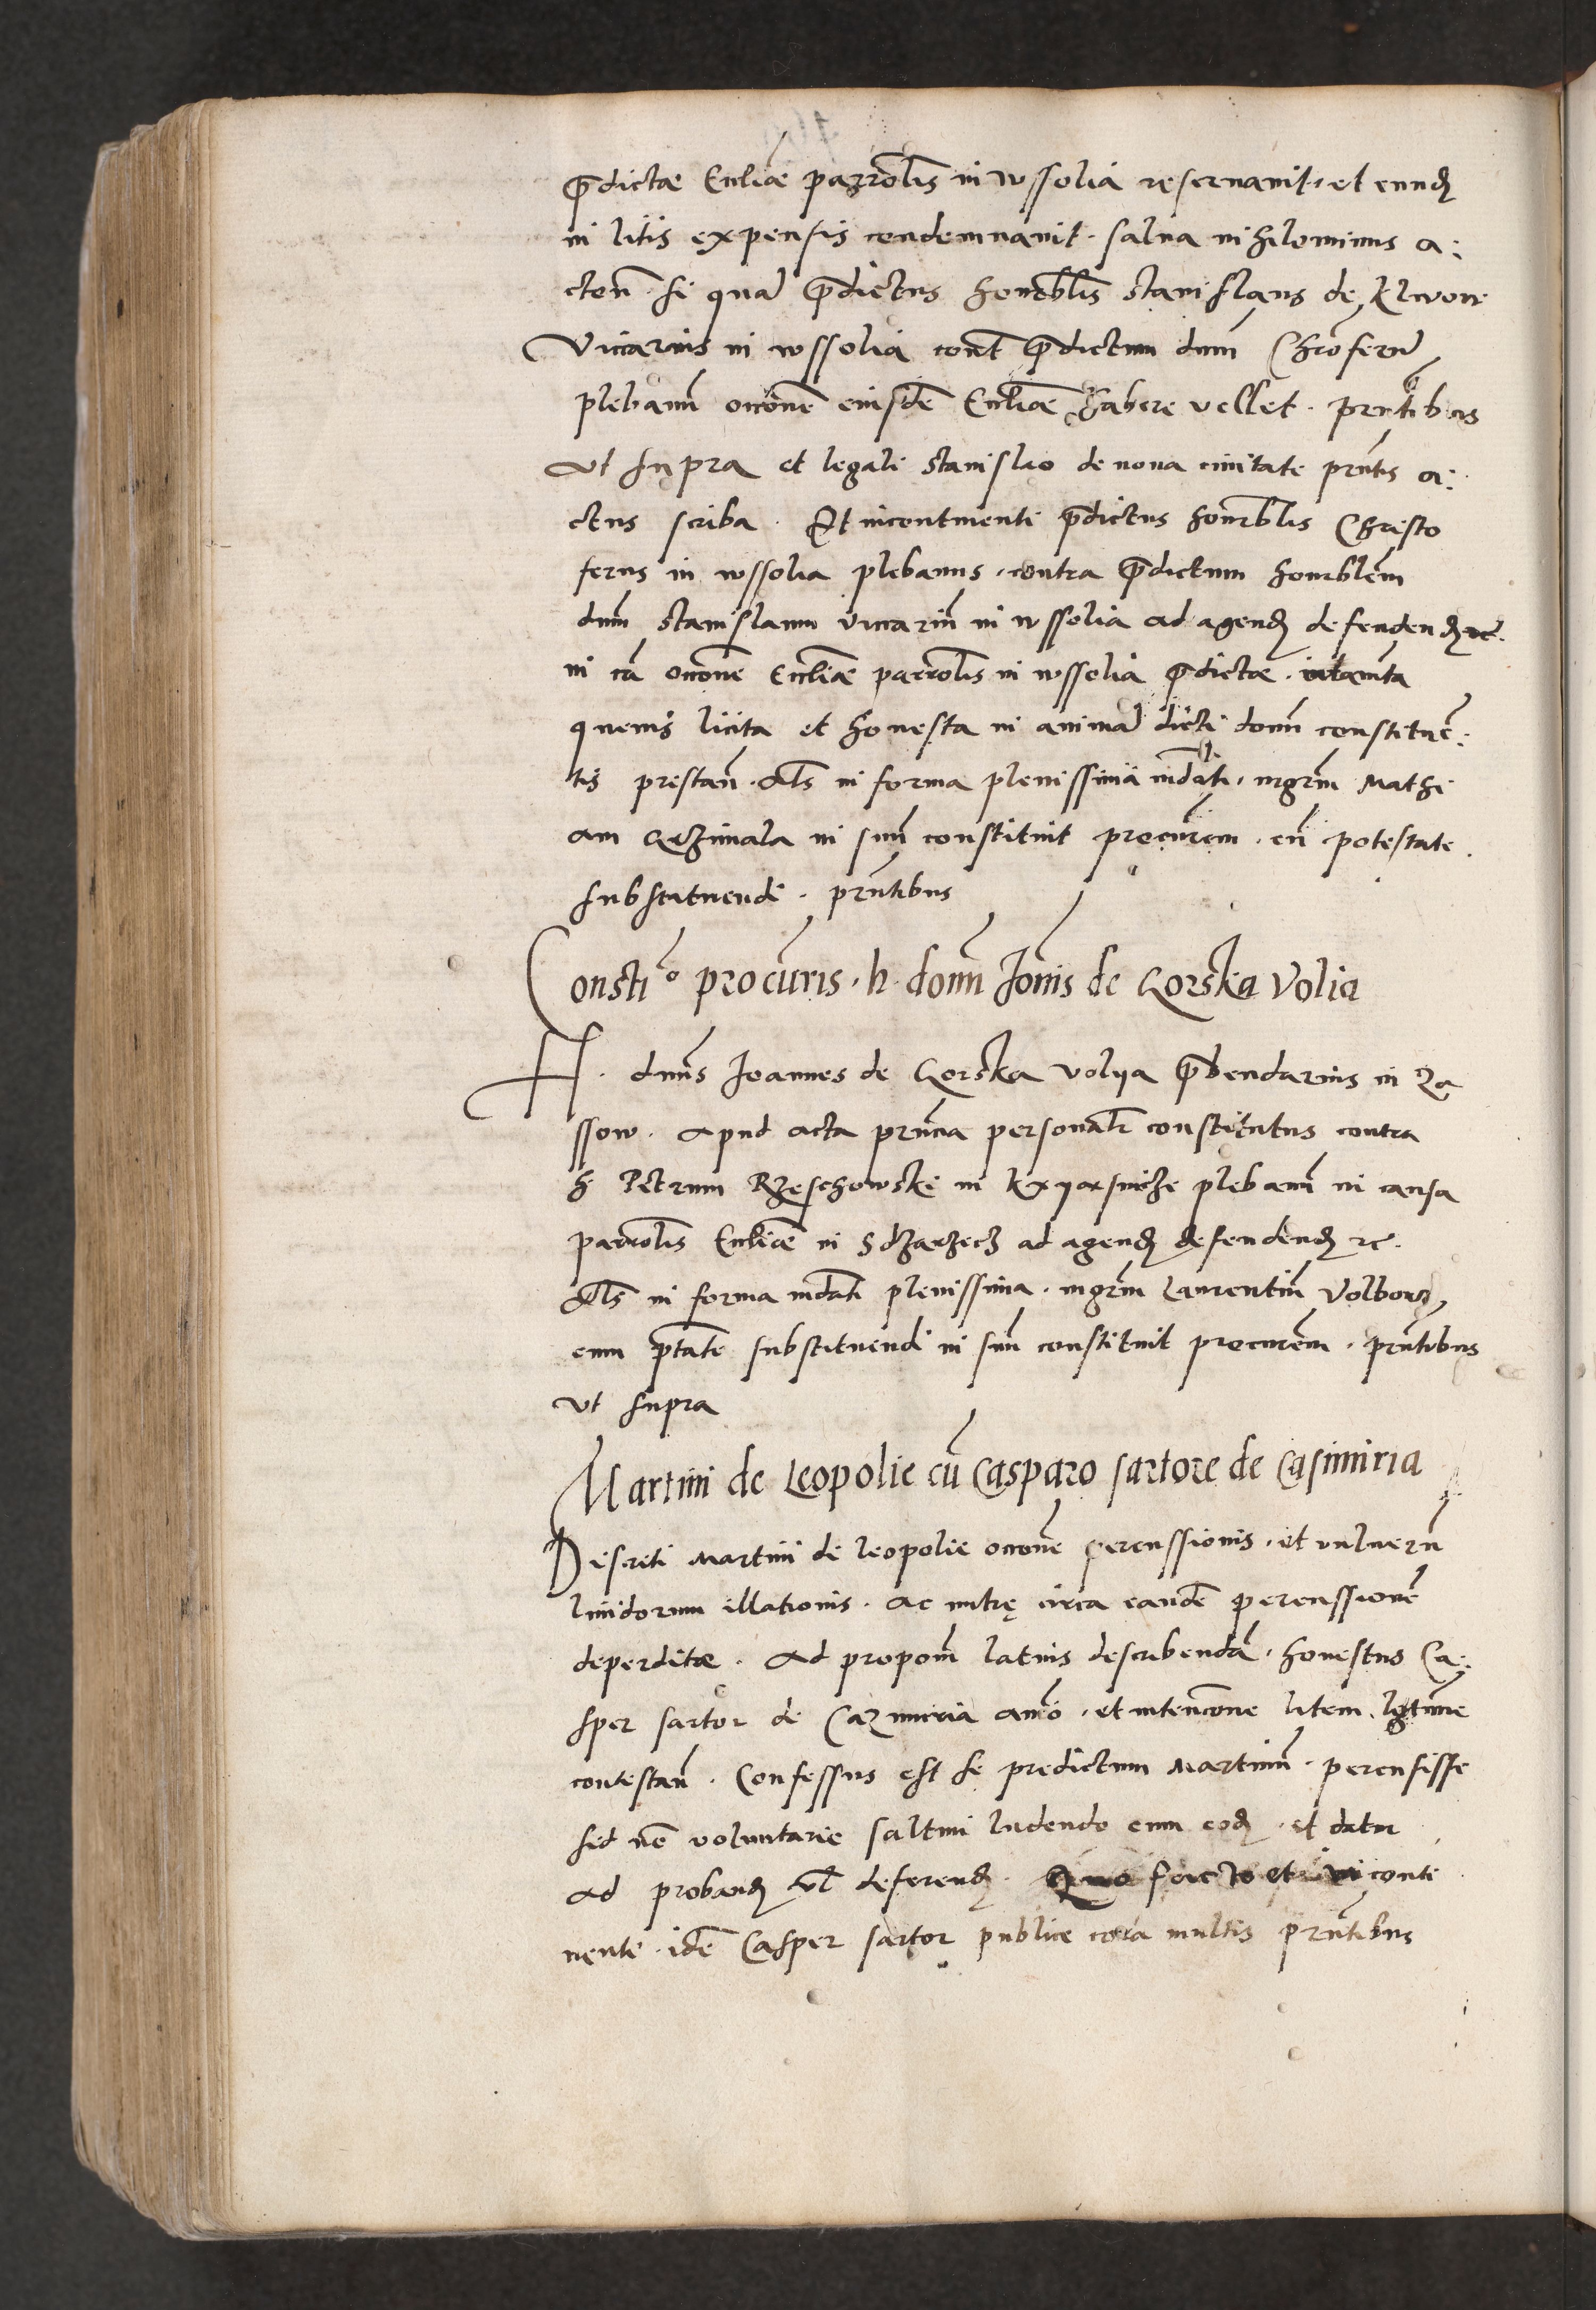 p̄dictae Eccliae parrolis in wssolia reservavit. et eundꝫ
in litis expensis condemnavit. salva nihilominus a:
ctōn si quā p̄dictus honorblis stanislaus de
Viccarius in wssolia cont p̄dictum dnm Chrōferū
plebanū occōne eiusdē Ecclīae habere vellet. prntibus
ut supra et legali stanislao de nova civitate prntis a:
ctus scriba. Et incontinenti p̄dictus honorblis Christo
ferus in wssolia plebanus. contra p̄dictum honorblem
dnm stanislaum viccariū in wssolia ad agendꝫ defendendꝫ etc.
in cā occōne Eccliae parrolis in wssolia p̄dictae.
quemvis licita et honesta in animā dicti domī constituē:
tis prestan̄. als in forma plenissima mdati. mgrm Mathi
am in suū constituit procurem. cū potestate
substituendi. prntibus
Constio procuris. h. domī Joānis de Gorska Volia
H. dnus Joannes de Gorska Volya p̄bendarius in Ra
ssow. apud acta prncia personalr constitutus contra
h Petrum Rzeschowski in Kxyassnicze plebanū in causa
parrolis Ecclicae in ad agendꝫ defendendꝫ etc.
Als in forma mdati plenissima. mgrm Laurentiū Volborz
cum ptate substituendi in suū constituit procurem. prntibus
ut supra
Martini de Leopolie cū Casparo sartore de Casimiria
Discreti Martini de leopolie occōne percussionis. et vulnerū
lividorum illationis. ac mitrę circa eandē percussionē
deperditae. Ad propoōm latius describendā. honestus Ca:
sper sartor de Cazimiria animo. et intencōne litem. lgtime
contestan̄. Confessus est se predictum Martinum. percussisse
sed nō voluntarie saltim ludendo cum eodꝫ. et datur
ad probandꝫ vl deferendꝫ. Quo facto et in conti
nenti. idē Casper sartor publice corā multis prntibus